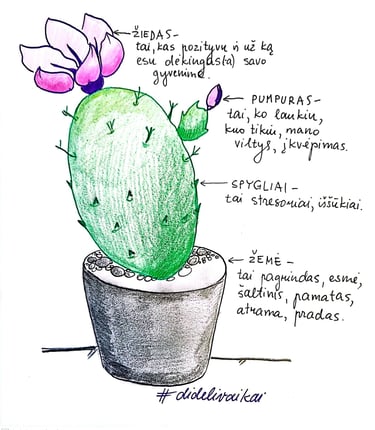 ŽIEDAS-
tai, kas pozityvu ir už ką
esu dėkingas(ta) savo
gyvenime.
PUMPURAS-
tai, ko laukiu,
kuo tikiu, mano
viltys, įkvėpimas.
SPYGLIAI-
tai stresoriai, iššūkiai.
ŽEMĖ-
tai pagrindas, esmė,
šaltinis, pamatas,
atrama, pradas.
#didelivaikai